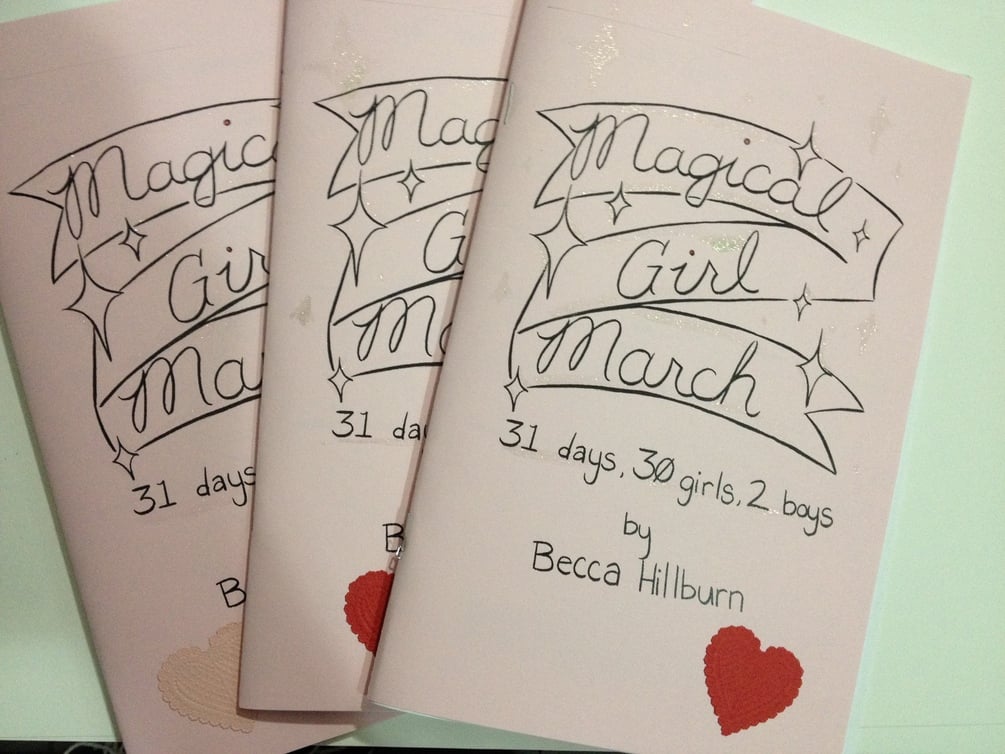 Magic
Gir
Ma
31 days
B
Mag
G
Ma
31 da
B
Magical
Girl
March
31 days, 30 girls, 2 boys
by
Becca Hillburn